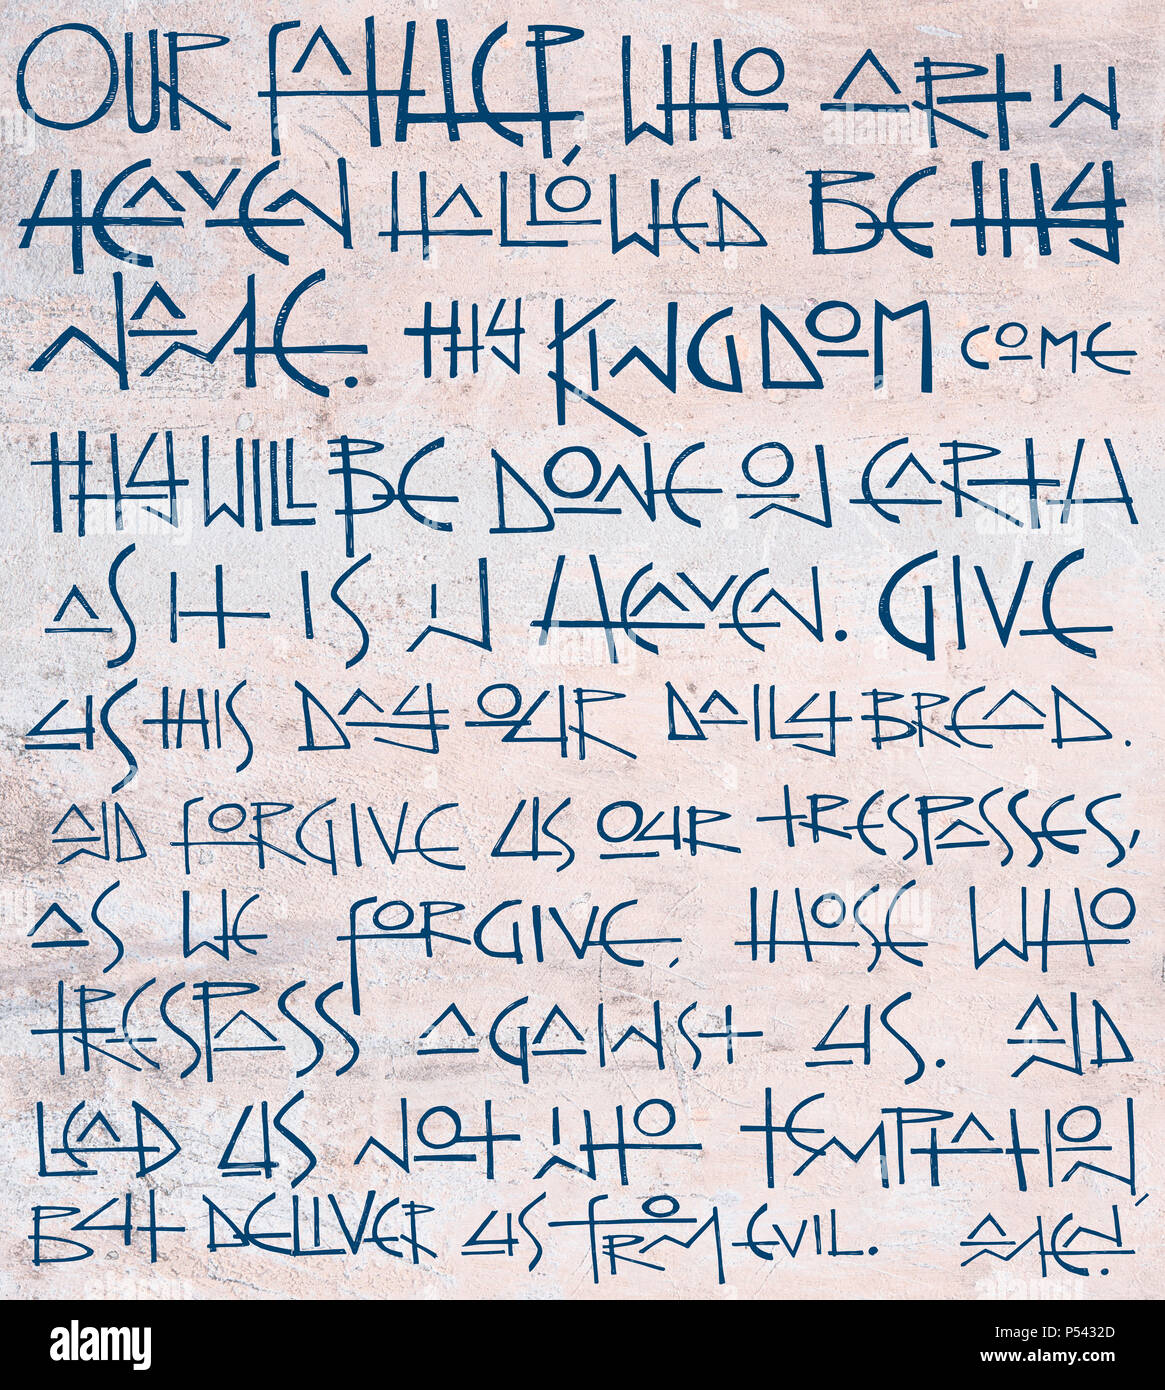 OUR FATHER WHO ART IN
HEAVEN HALLÓWED BE THY
NAME. THY KINGDOM COME
THY WILL BE DONE ON EARTH
AS IT IS IN HEAVEN. GIVE
US THIS DAY OUR DAILY BREAD.
AND FORGIVE US OUR TRESPASSES,
AS WE FORGIVE, THOSE WHO
TRESPASS AGAINST US. AND
LEAD US NOT INTO TEMPTATION,
BUT DELIVER US FROM EVIL. AMEN.
alamy
Image ID: P5432D
www.alamy.com